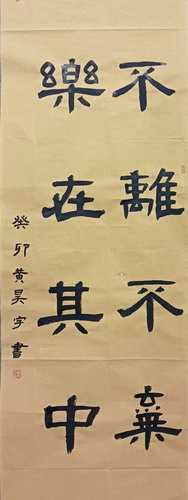 不離不棄
樂在其中
癸卯黃昊宇書